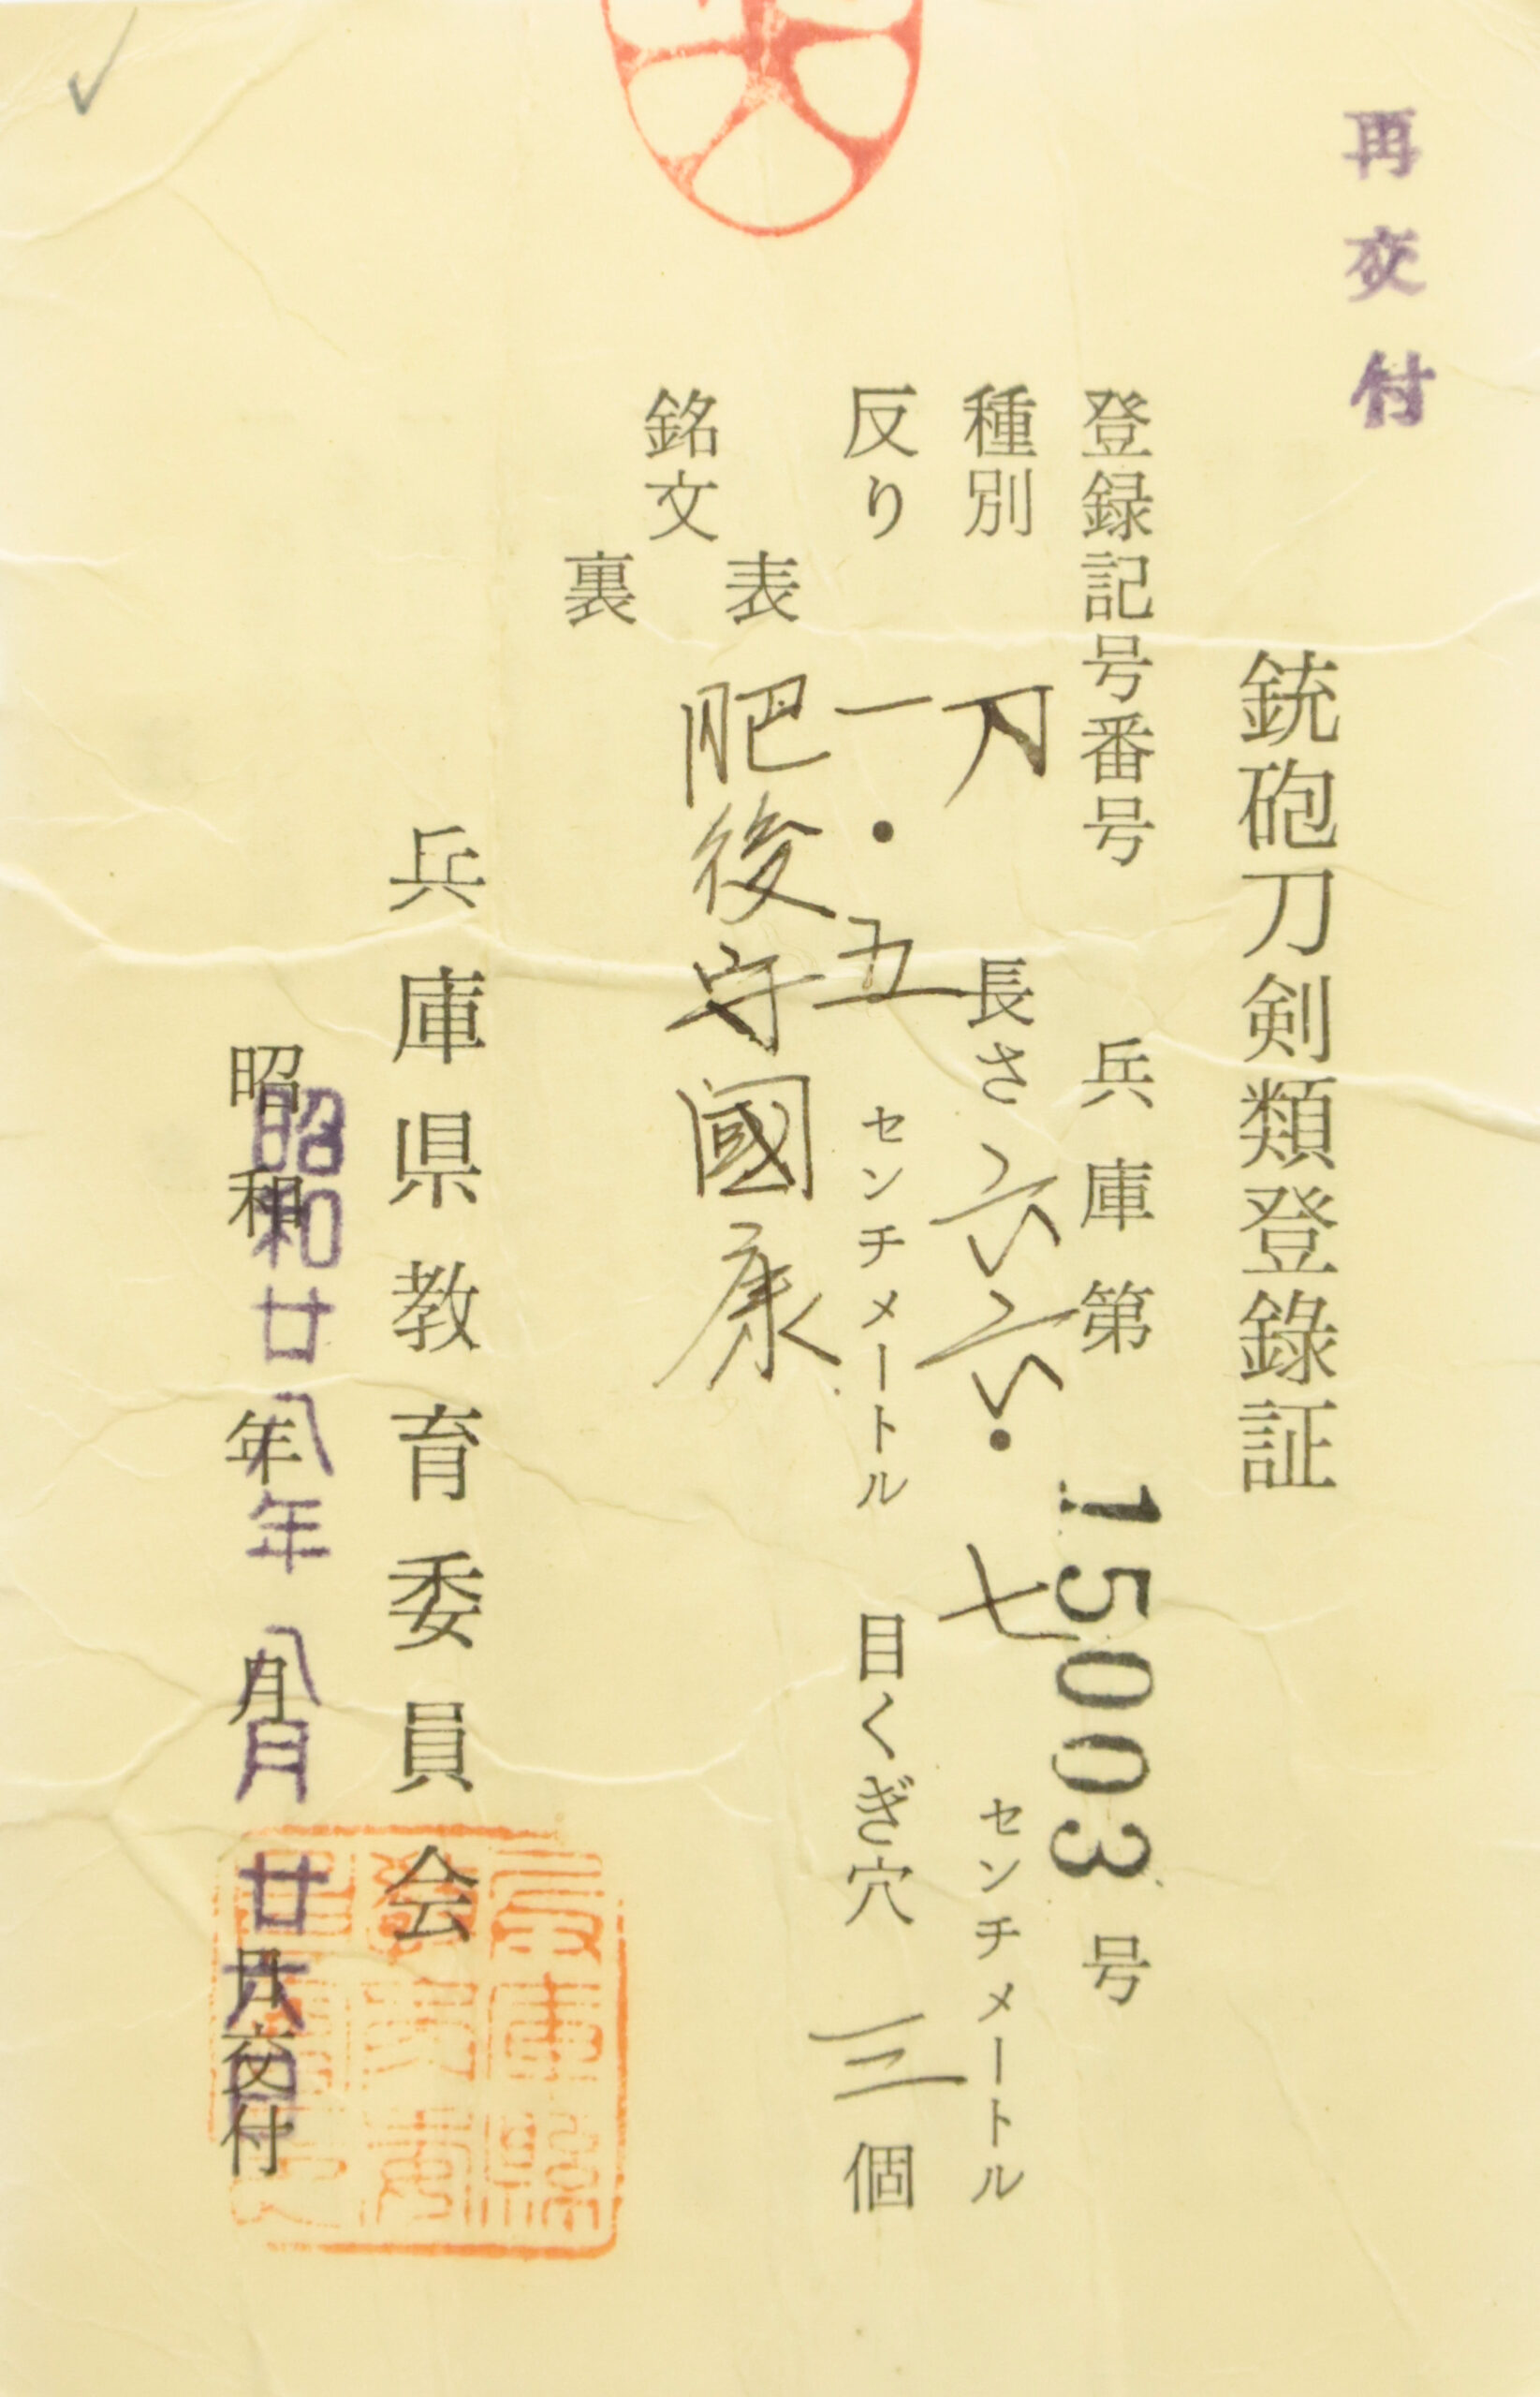 再交付
銃砲刀剣類登錄証
登録記号番号 兵庫第 15003 号
種別 刀 長さ 六六・七 センチメートル
反り 一・五 センチメートル 目くぎ穴 三 個
銘文
表 肥後守國康
裏
兵庫県教育委員会
昭和 年 月 日交付
昭和廿八年八月廿六日